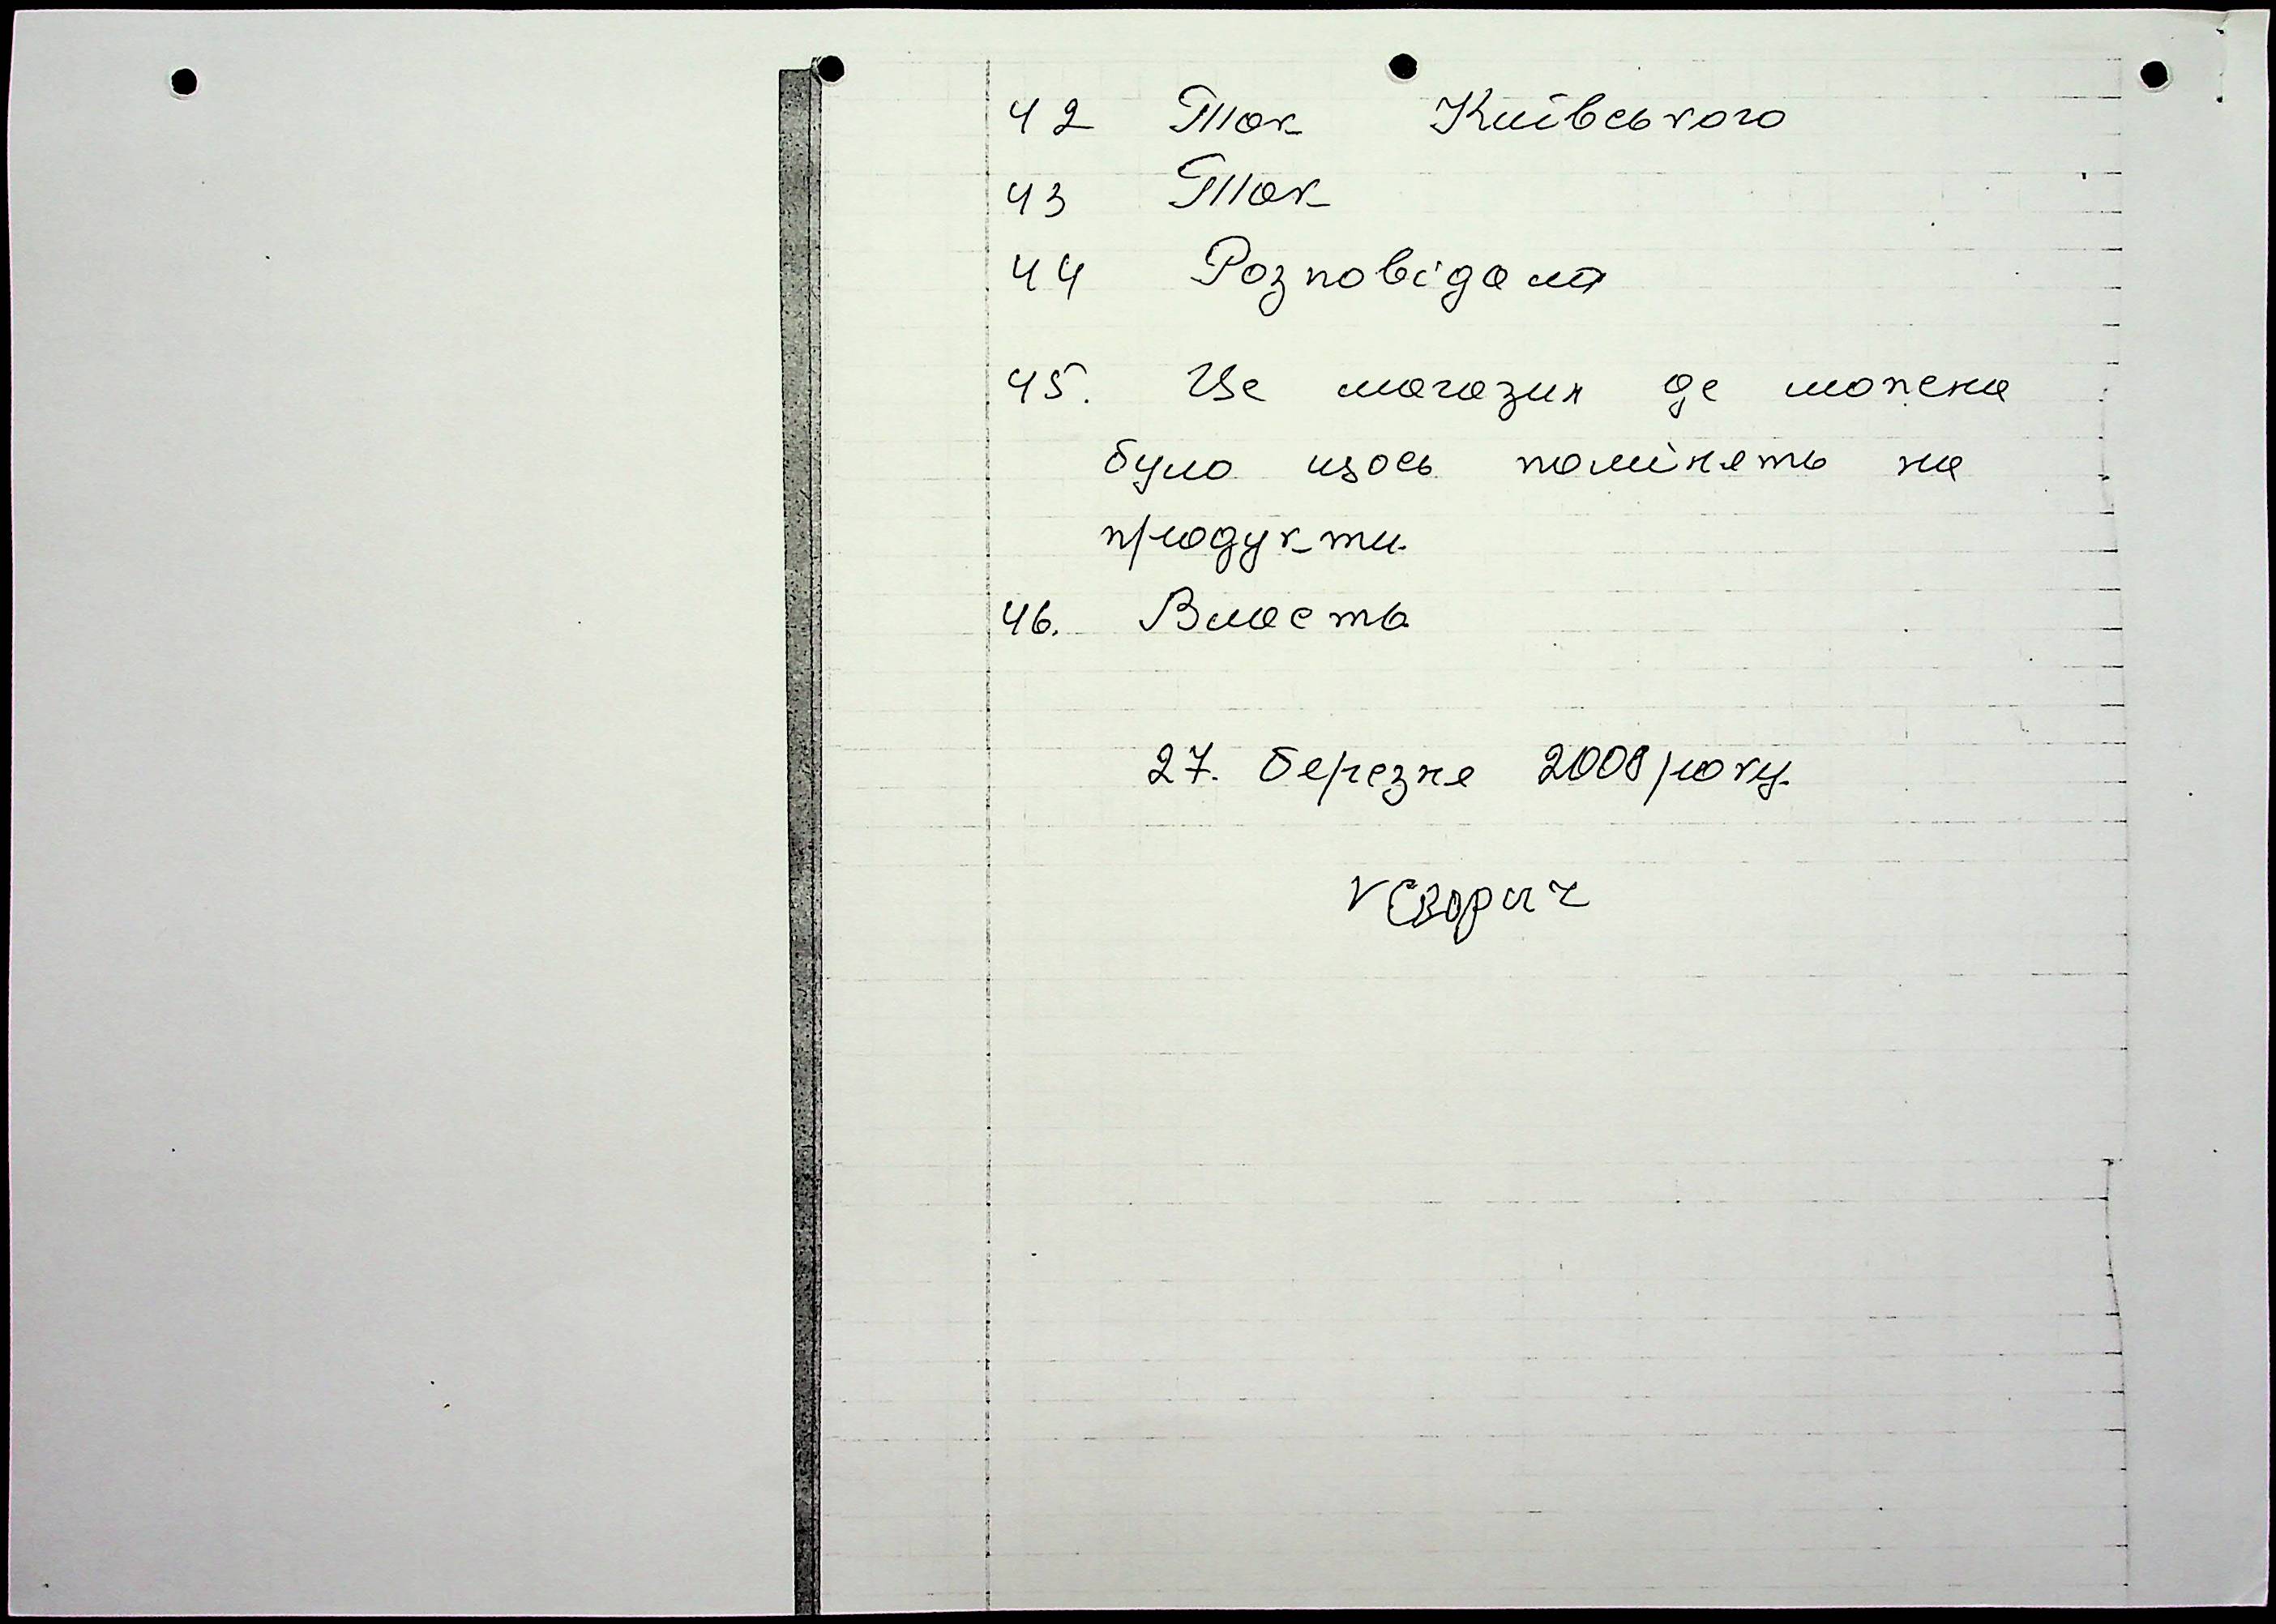 42 Так Київського
43 Так
44 Розповідали
45. Це магазин де можна
було щось помінять на
продукти.
46. Власть
27. березня 2008 року.
Сворич